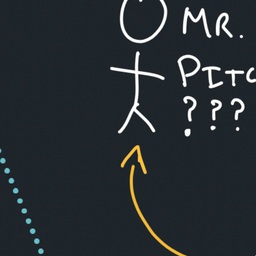 MR.
PITC
???